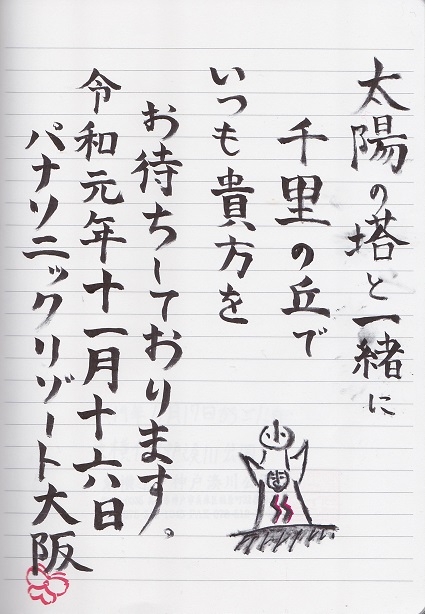 太陽の塔と一緒に
千里の丘で
いつも貴方を
お待ちしております。
令和元年十一月十六日
パナソニックリゾート大阪